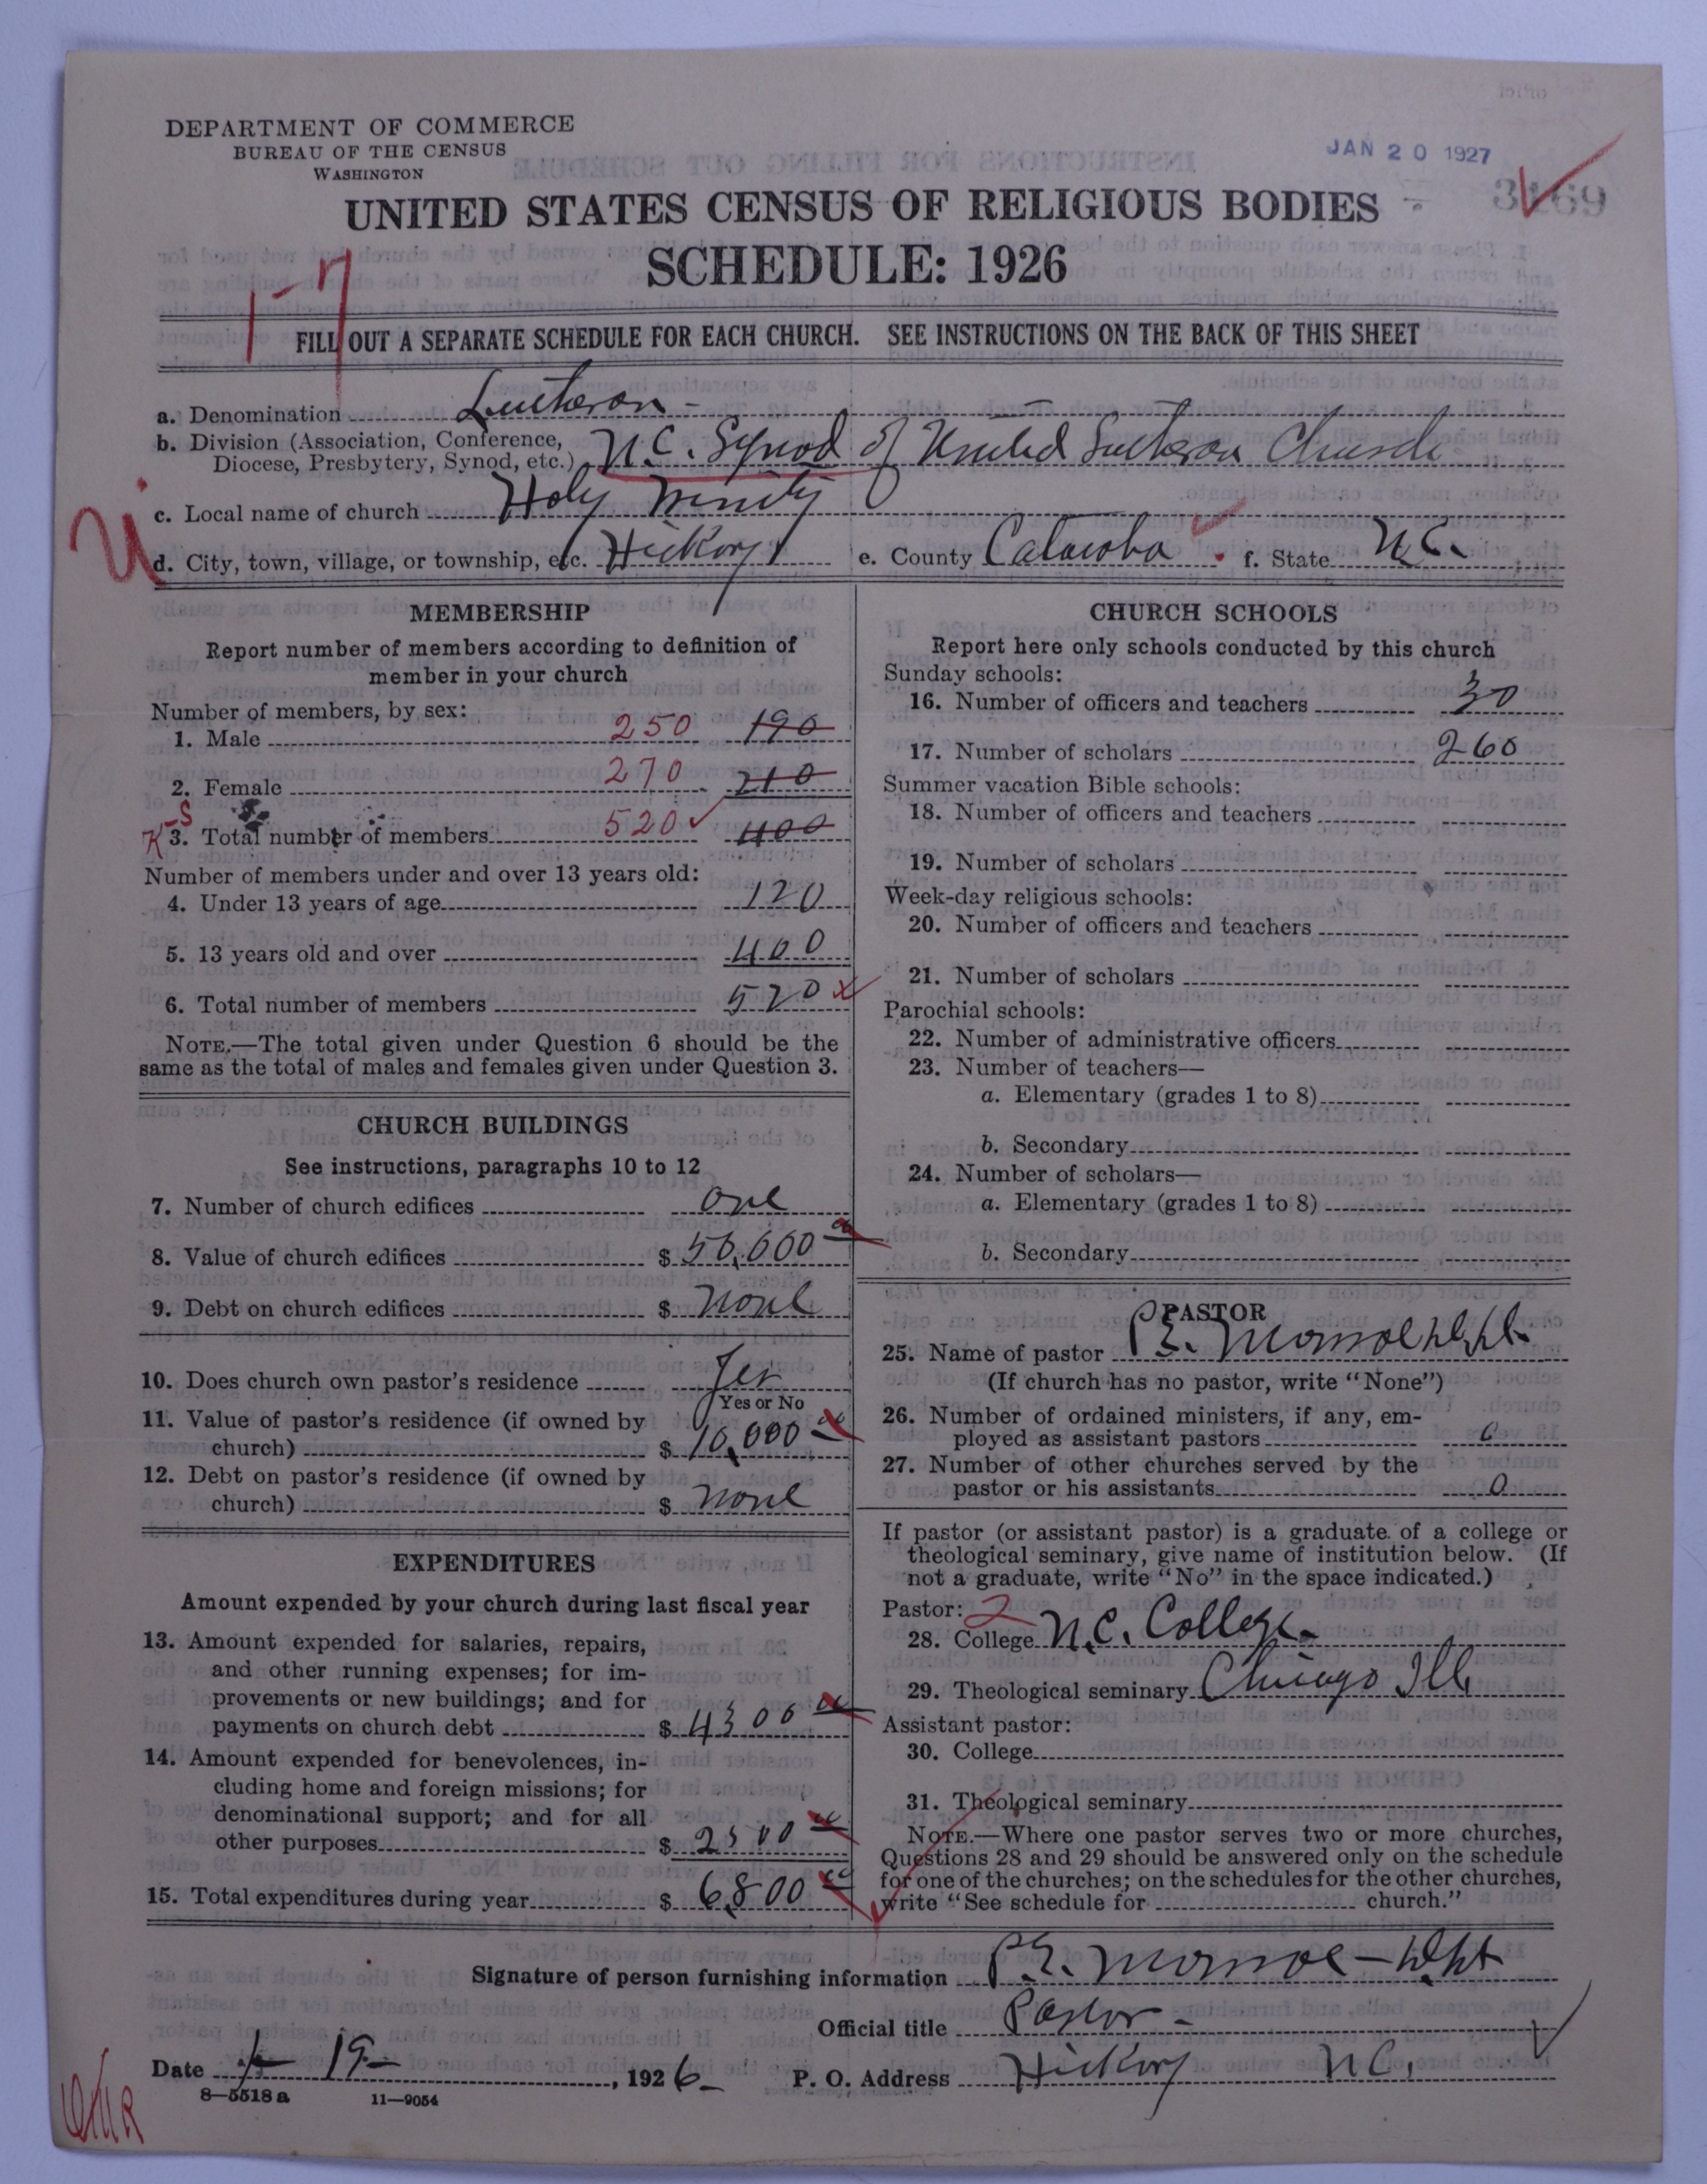 DEPARTMENT OF COMMERCE
BUREAU OF THE CENSUS
WASHINGTON
JAN 20 1927
UNITED STATES CENSUS OF RELIGIOUS BODIES
SCHEDULE: 1926
1-7
FILL OUT A SEPARATE SCHEDULE FOR EACH CHURCH. SEE INSTRUCTIONS ON THE BACK OF THIS SHEET
a. Denomination Lutheran -
b. Division (Association, Conference,
Diocese, Presbytery, Synod, etc.) N.C. Synod of United Lutheran Church
c. Local name of church Holy Trinity
U
d. City, town, village, or township, etc. Hickory e. County Catawba f. State N.C.
MEMBERSHIP
Report number of members according to definition of
member in your church
Number of members, by sex:
1. Male 250 190
2. Female 270 210
3. Total number of members 520 400
Number of members under and over 13 years old:
4. Under 13 years of age 120
5. 13 years old and over 400
6. Total number of members 520
NOTE.—The total given under Question 6 should be the
same as the total of males and females given under Question 3.
CHURCH BUILDINGS
See instructions, paragraphs 10 to 12
7. Number of church edifices one
8. Value of church edifices $ 50,000 00
9. Debt on church edifices $ none
10. Does church own pastor's residence Yes
Yes or No
11. Value of pastor's residence (if owned by
church) $ 10,000 00
12. Debt on pastor's residence (if owned by
church) $ none
EXPENDITURES
Amount expended by your church during last fiscal year
13. Amount expended for salaries, repairs,
and other running expenses; for im-
provements or new buildings; and for
payments on church debt $ 4300 00
14. Amount expended for benevolences, in-
cluding home and foreign missions; for
denominational support; and for all
other purposes $ 2500 00
15. Total expenditures during year $ 6800 00
CHURCH SCHOOLS
Report here only schools conducted by this church
Sunday schools:
16. Number of officers and teachers 30
17. Number of scholars 260
Summer vacation Bible schools:
18. Number of officers and teachers
19. Number of scholars
Week-day religious schools:
20. Number of officers and teachers
21. Number of scholars
Parochial schools:
22. Number of administrative officers
23. Number of teachers—
a. Elementary (grades 1 to 8)
b. Secondary
24. Number of scholars—
a. Elementary (grades 1 to 8)
b. Secondary
PASTOR
25. Name of pastor P.E. Monroe
(If church has no pastor, write "None")
26. Number of ordained ministers, if any, em-
ployed as assistant pastors 0
27. Number of other churches served by the
pastor or his assistants 0
If pastor (or assistant pastor) is a graduate of a college or
theological seminary, give name of institution below. (If
not a graduate, write "No" in the space indicated.)
Pastor: 2
28. College N.C. College
29. Theological seminary Chicago Ill
Assistant pastor:
30. College
31. Theological seminary
NOTE.—Where one pastor serves two or more churches,
Questions 28 and 29 should be answered only on the schedule
for one of the churches; on the schedules for the other churches,
write "See schedule for church."
Signature of person furnishing information P.E. Monroe
Official title Pastor -
Date 19 - , 1926 - P. O. Address Hickory N.C.
8—5518 a 11—9054